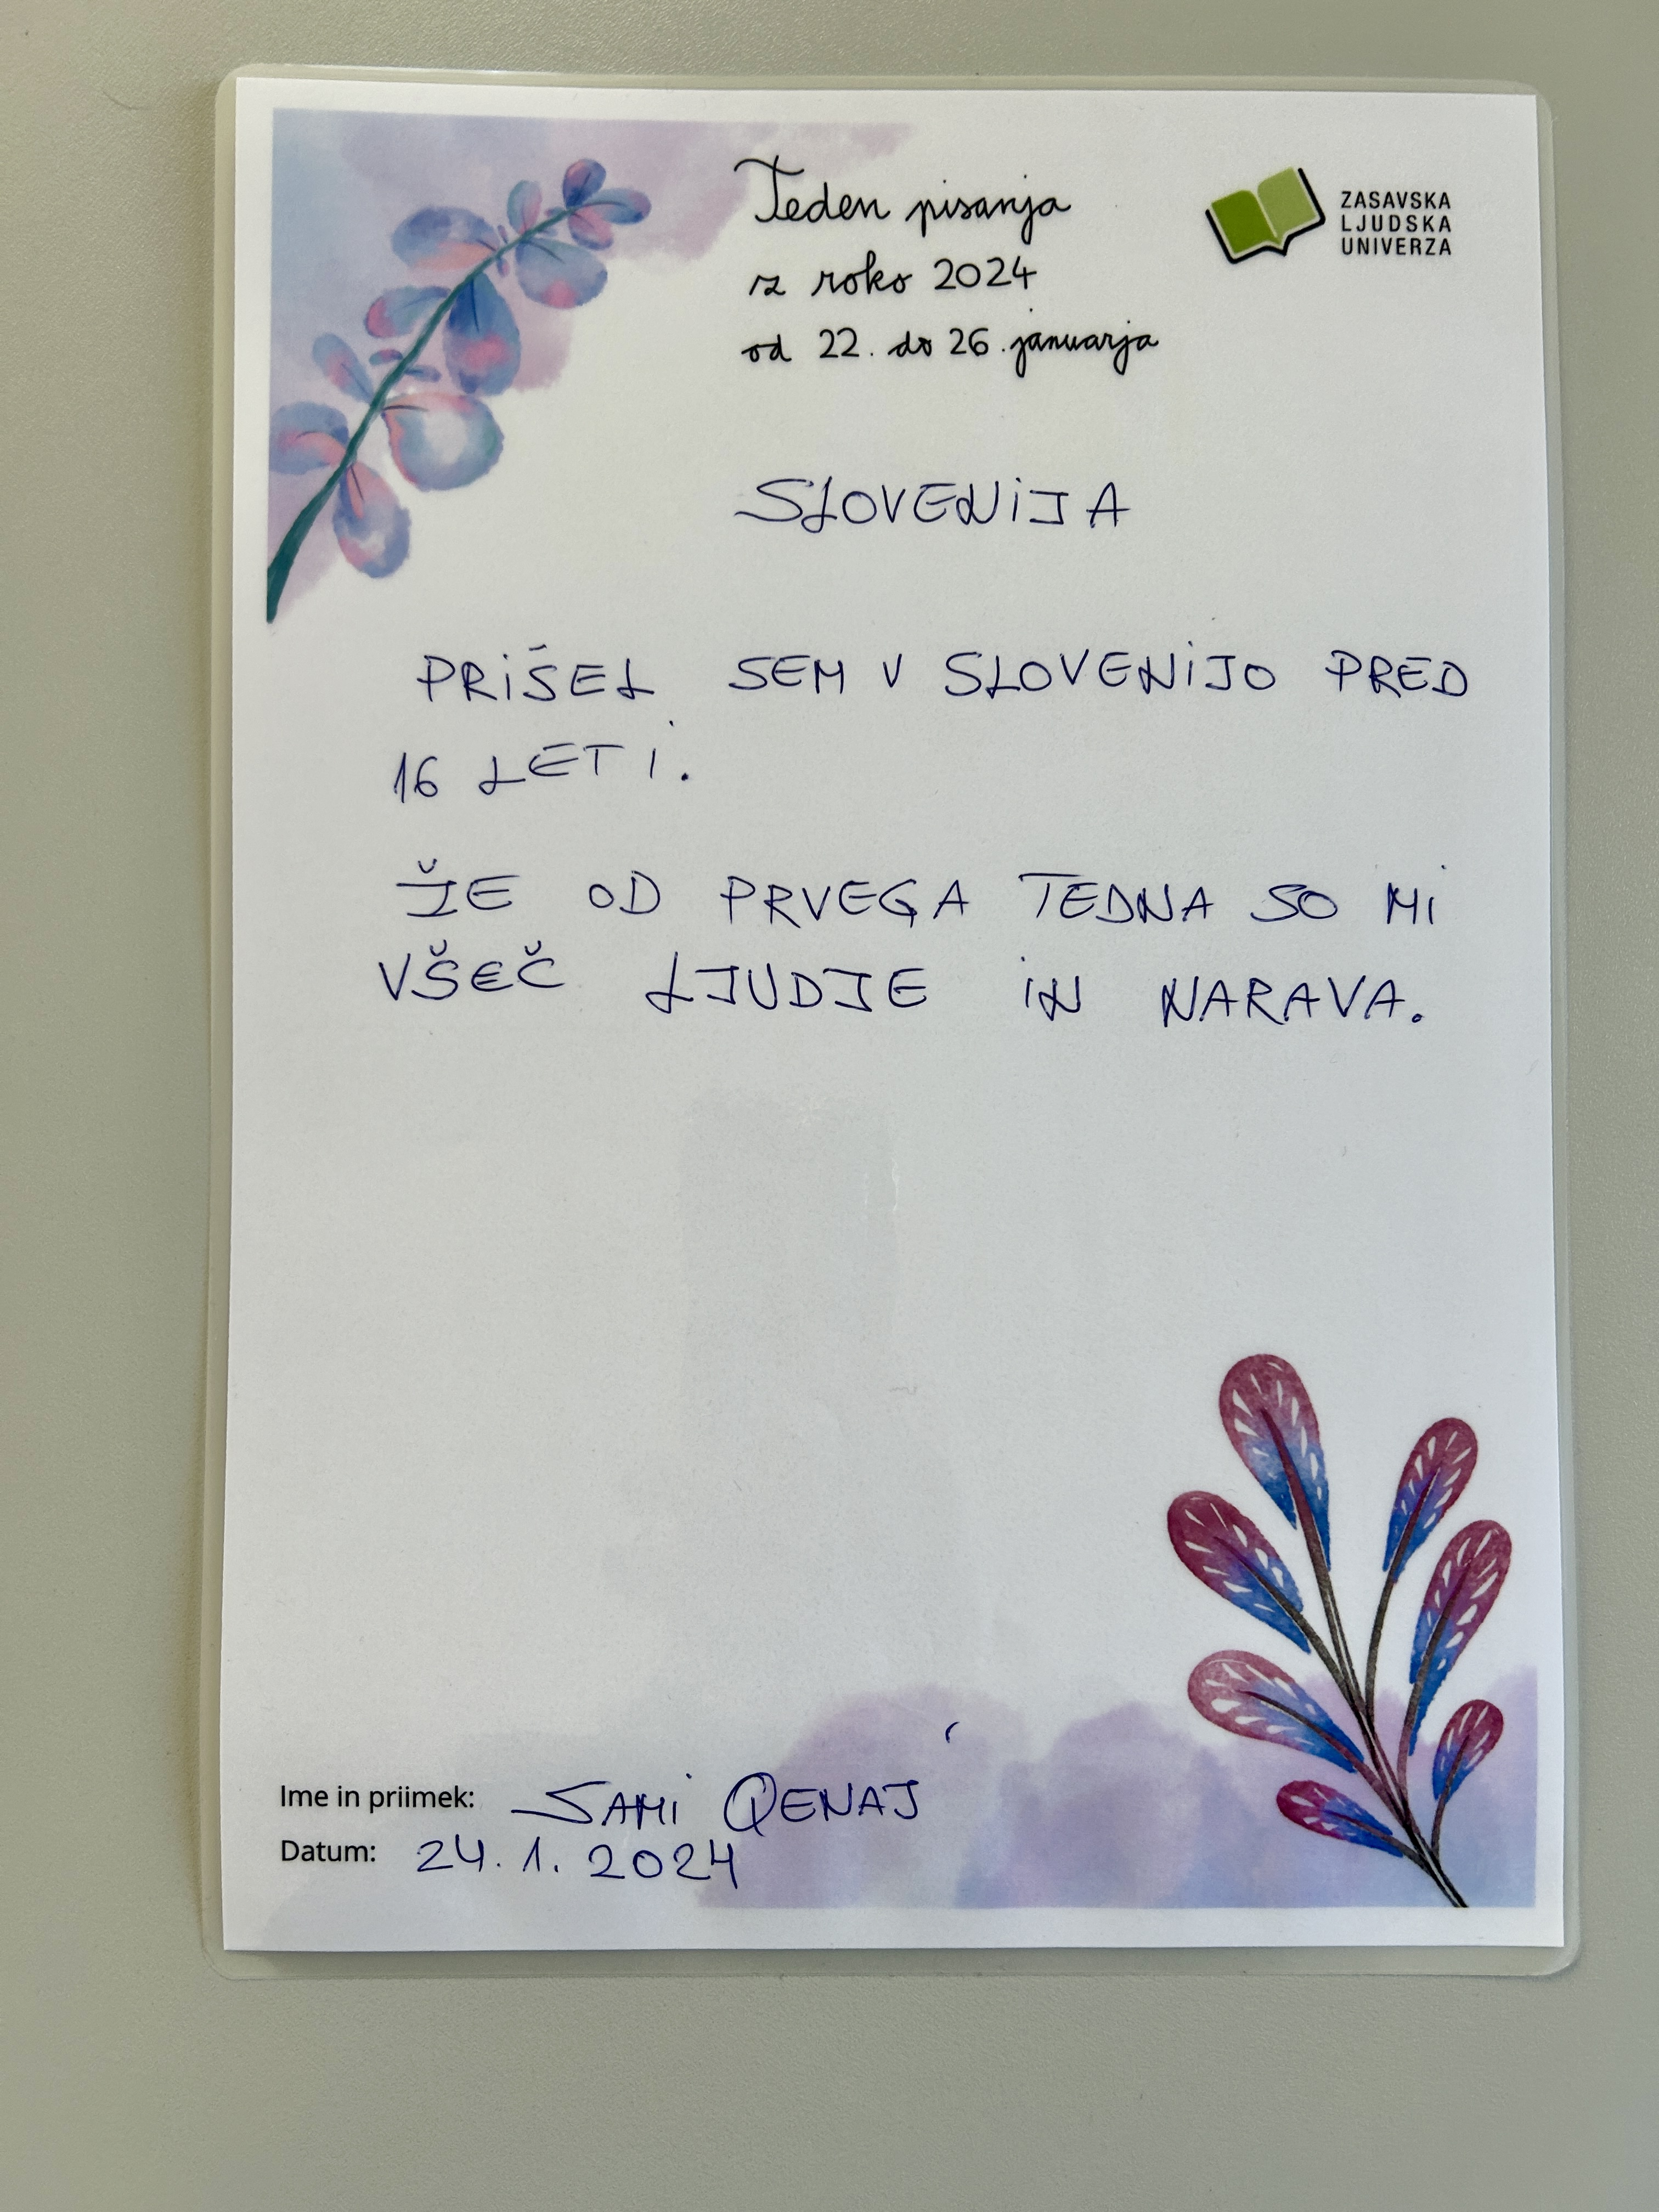 Teden pisanja
z roko 2024
od 22. do 26. januarja
ZASAVSKA
LJUDSKA
UNIVERZA
SLOVENIJA
PRIŠEL SEM V SLOVENIJO PRED
16 LETI.
ŽE OD PRVEGA TEDNA SO MI
VŠEČ LJUDJE IN NARAVA.
Ime in priimek: SAMI QENAJ
Datum: 24. 1. 2024